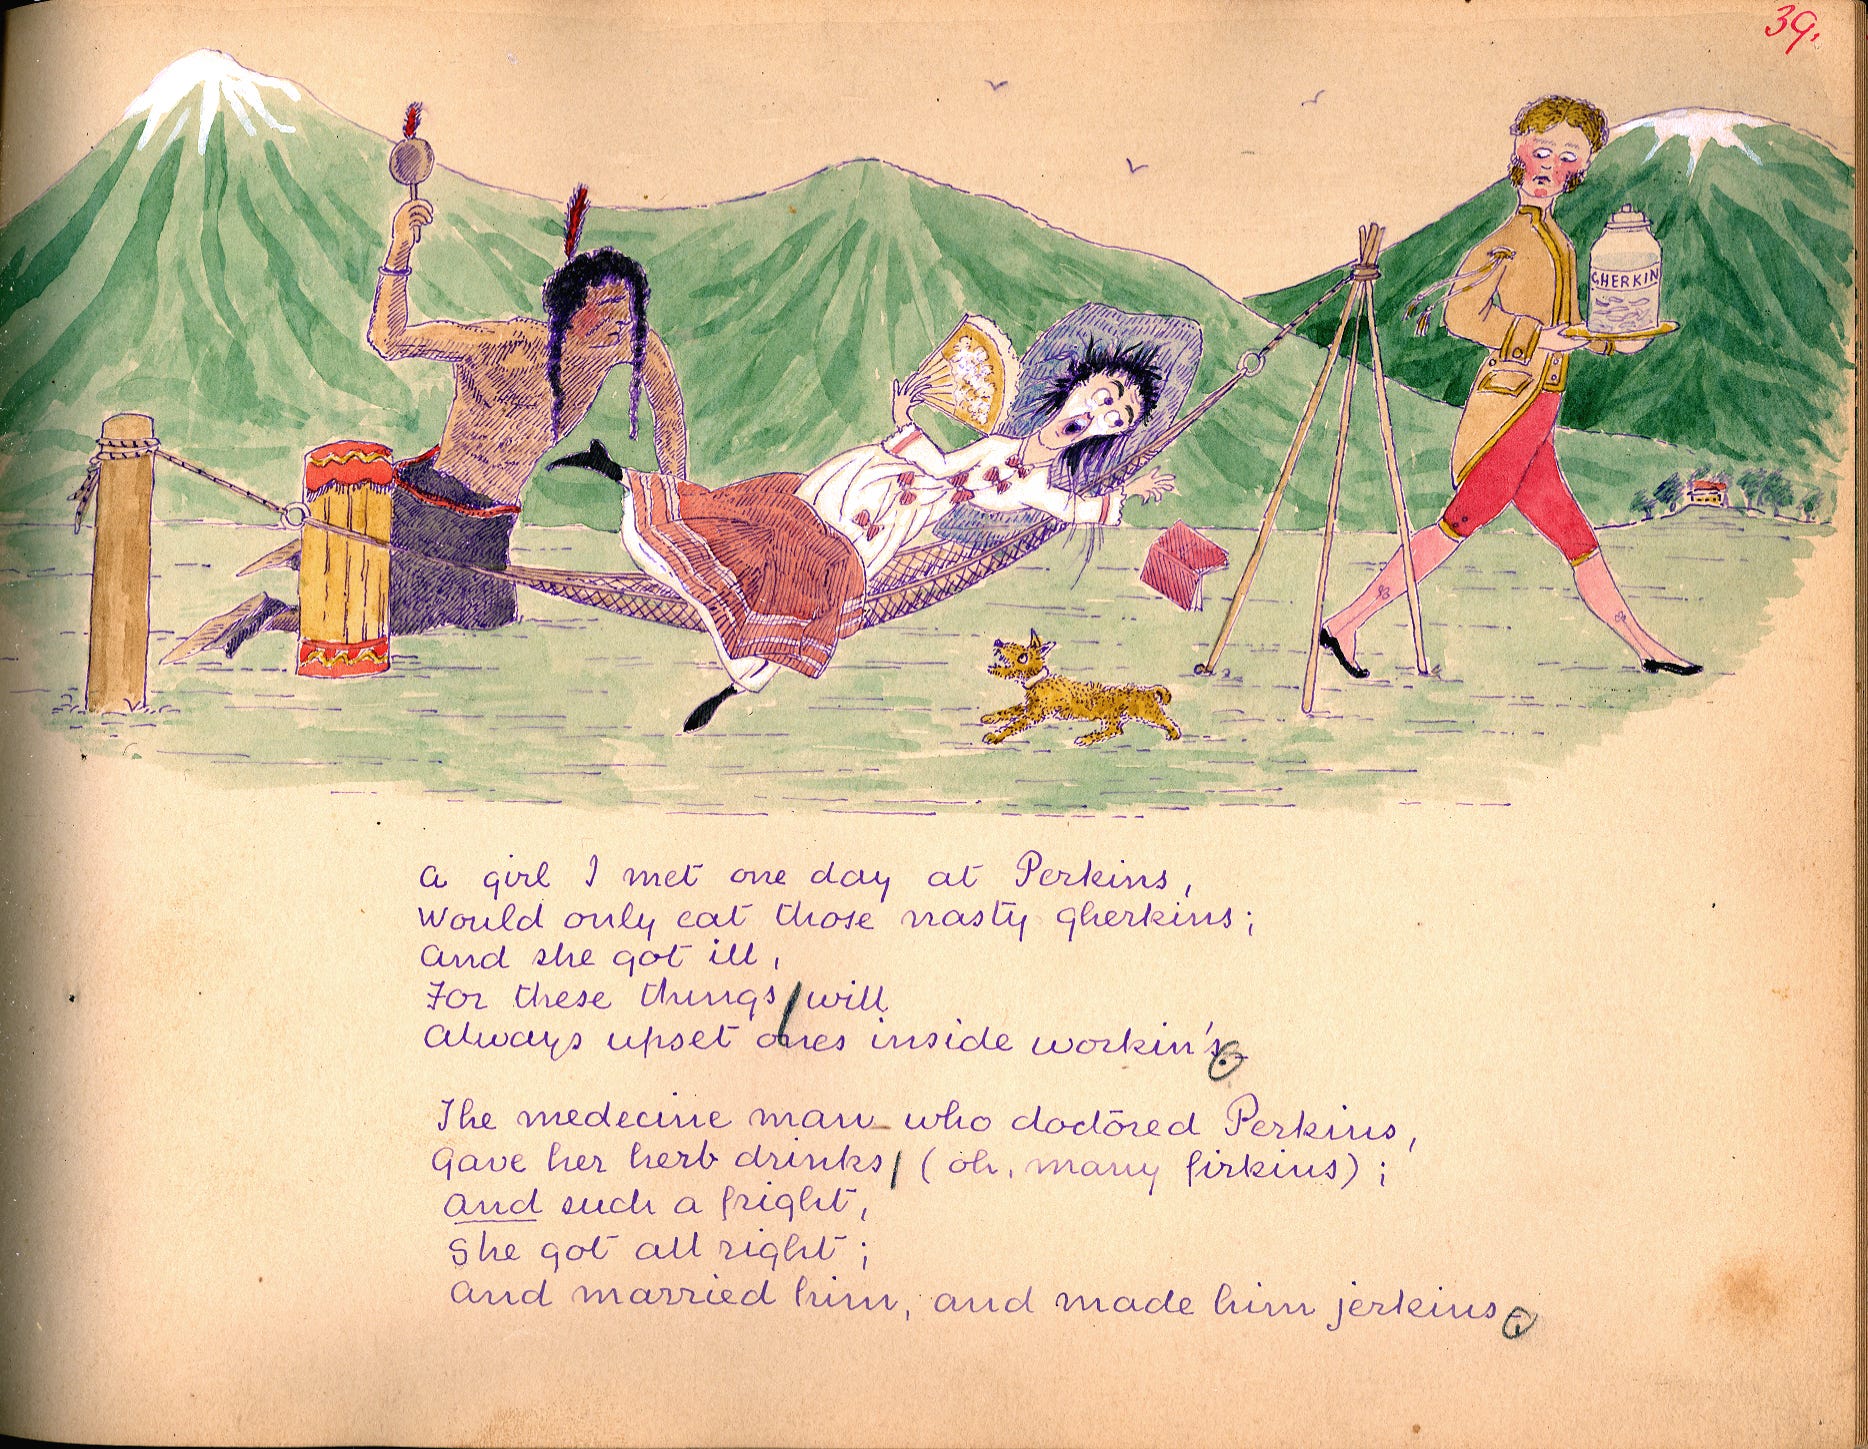 39.
GHERKIN
A girl I met one day at Perkins,
Would only eat those nasty gherkins;
And she got ill,
For these things will
Always upset ones inside workin's.
The medecine man who doctored Perkins,
Gave her herb drinks (oh, many firkins);
And such a fright,
She got all right;
And married him, and made him jerkins.